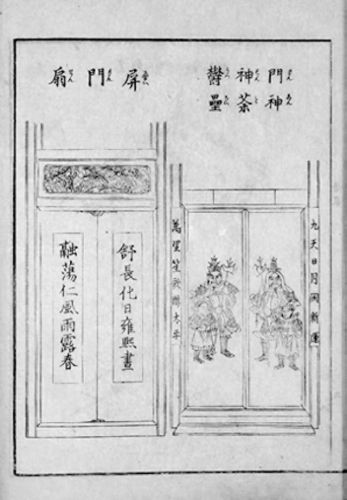 門神
神荼
鬱壘
九天日月開新運
萬笙歌太平
屏門扇
舒長化日雍熙晝
融蕩仁風雨露春